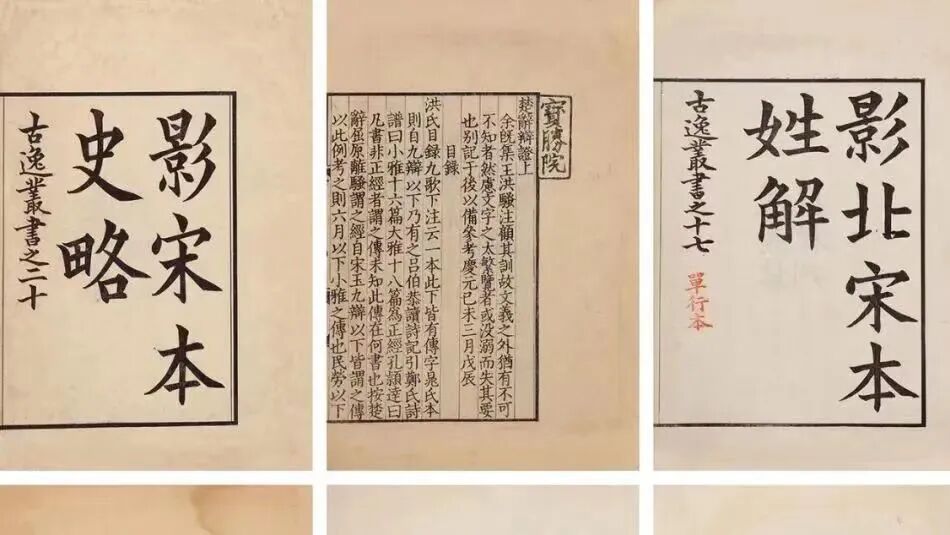 影宋本
史略
古逸叢書之二十
寶勝院
楚辭辯證上
余既集王洪騷注顧其訓故文義之外猶有不可
不知者然慮文字之太繁覽者或没溺而失其要
也別記于後以備參考慶元己未三月戊辰
目録
洪氏目録九歌下注云一本此下皆有傳字晁氏本
則自九辯以下乃有之吕伯恭讀詩記引鄭氏詩
譜曰小雅十六篇大雅十八篇為正經孔穎達曰
凡書非正經者謂之傳未知此傳在何書也按楚
辭屈原離騷謂之經自宋玉九辯以下皆謂之傳
以此例考之則六月以下小雅之傳也民勞以下
影北宋本
姓解
古逸叢書之十七
單行本